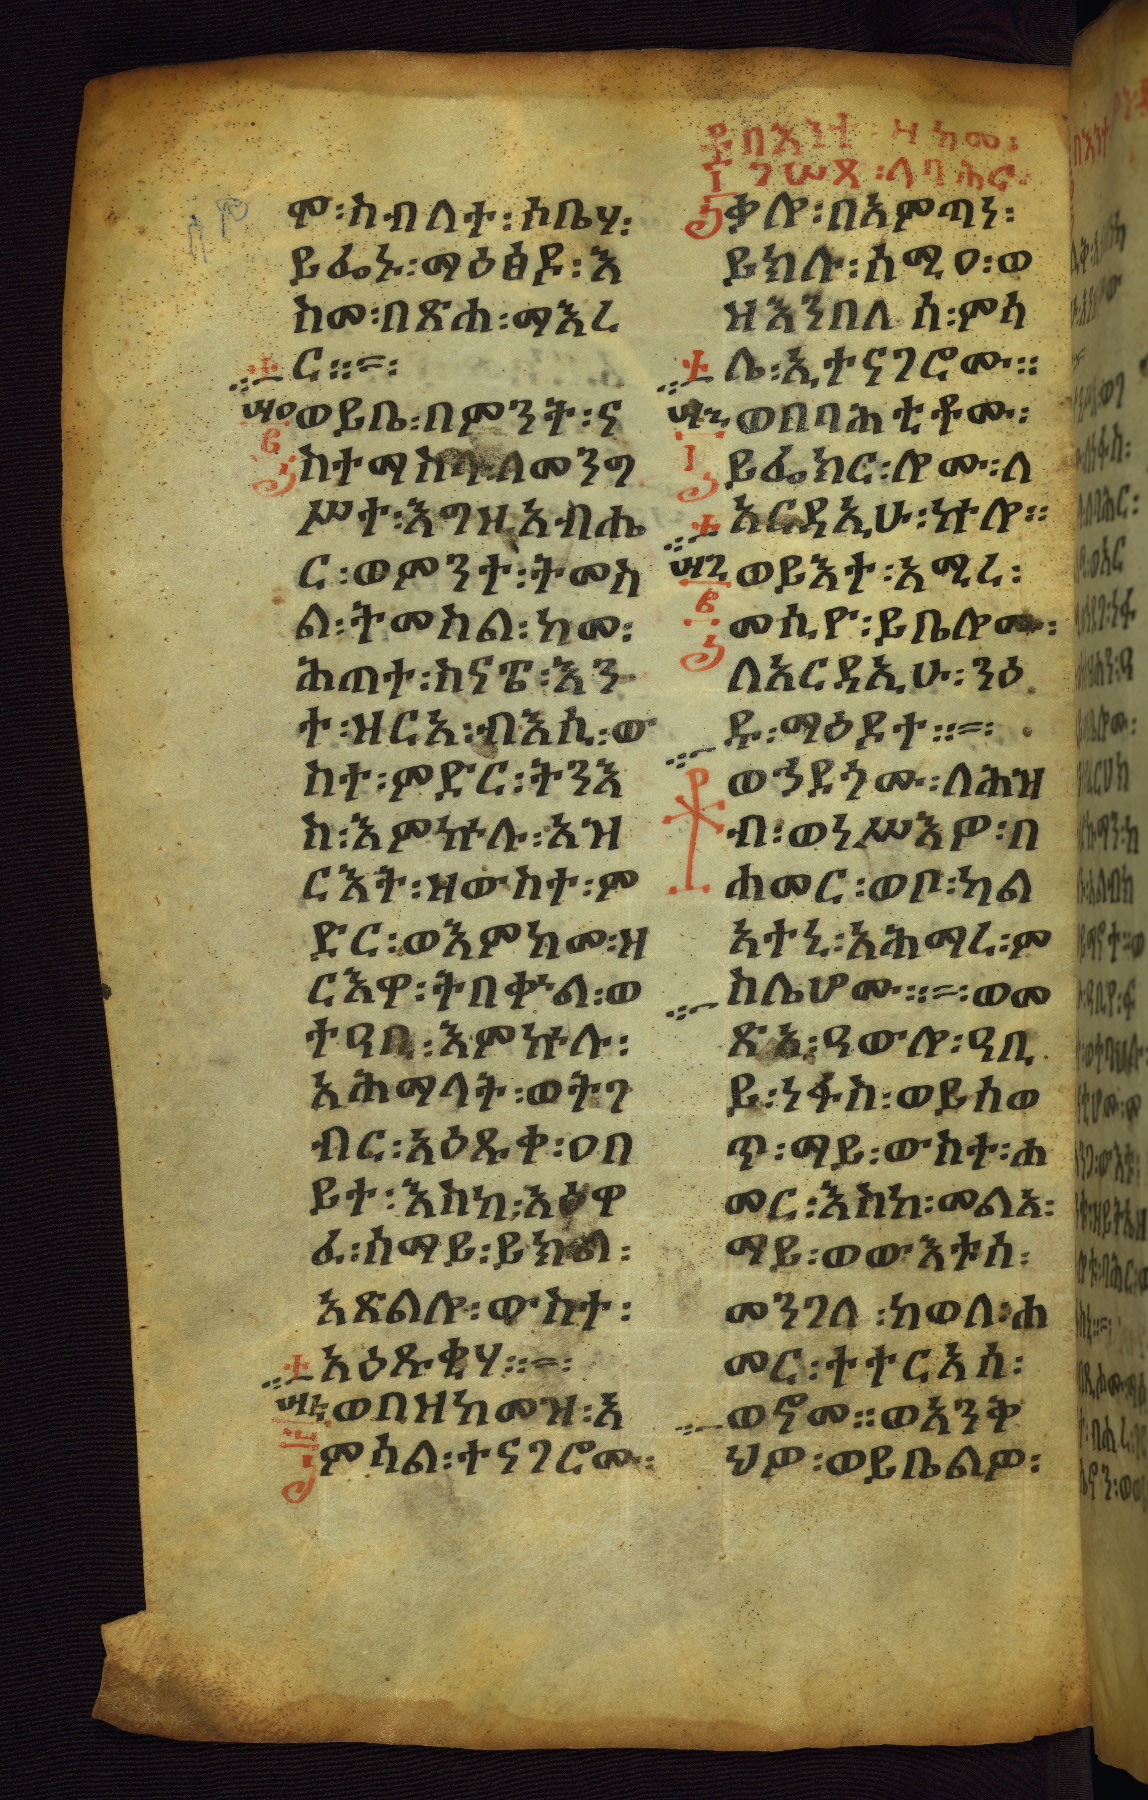 በእንተ ፡ ዘከመ ፡
ገሠጸ ፡ ለባሕር ፡
ሞ ፡ ስብለተ ፡ ሶቤሃ ፡
ይፌኑ ፡ ማዕፀደ ፡ እ
ስመ ፡ በጽሐ ፡ ማእረ
ር ።=፡
ወይቤ ፡ በምንት ፡ ና
ስተማስላ ፡ ለመንግ
ሥተ ፡ እግዚአብሔ
ር ፡ ወምንተ ፡ ትመስ
ል ፡ ትመስል ፡ ከመ ፡
ሕጠተ ፡ ስናፔ ፡ እን
ተ ፡ ዝርእ ፡ ብእሲ ፡ ው
ስተ ፡ ምድር ፡ ትንእ
ስ ፡ እምኵሉ ፡ አዝ
ርእት ፡ ዘውስተ ፡ ም
ድር ፡ ወእምከመ ፡ ዘ
ርእዋ ፡ ትበቍል ፡ ወ
ተዓቢ ፡ እምኵሉ ፡
አሕማላት ፡ ወትገ
ብር ፡ አዕጹቀ ፡ ዐበ
ይተ ፡ እስከ ፡ አዕዋ
ፈ ፡ ሰማይ ፡ ይክል ፡
አጽልሎ ፡ ውስተ ፡
አዕጹቂሃ ።=፡
ወበዘከመዝ ፡ አ
ምሳል ፡ ተናገሮሙ ፡
ቃሎ ፡ በአምጣነ ፡
ይክሉ ፡ ሰሚዐ ፡ ወ
ዝእንበለ ሰ ፡ ምሳ
ሌ ፡ ኢተናገሮሙ ።
ወበባሕቲቶሙ ፡
ይፌክር ፡ ሎሙ ፡ ለ
አርዳኢሁ ፡ ኵሎ ።
ወይእተ ፡ አሚረ ፡
መስዮ ፡ ይቤሎሙ ፡
ለአርዳኢሁ ፡ ንዕ
ዱ ፡ ማዕደተ ።=፡
ወኀደጎሙ ፡ ለሕዝ
ብ ፡ ወነሥእዎ ፡ በ
ሐመር ፡ ወቦ ፡ ካል
አተኒ ፡ አሕማረ ፡ ም
ስሌሆሙ ።=፡ ወመ
ጽአ ፡ ዓውሎ ፡ ዓቢ
ይ ፡ ነፋስ ፡ ወይሰወ
ጥ ፡ ማይ ፡ ውስተ ፡ ሐ
መር ፡ እስከ ፡ መልአ ፡
ማይ ፡ ወውእቱሰ ፡
መንገለ ፡ ከወላ ፡ ሐ
መር ፡ ተተርአሰ ፡
ወኖመ ። ወአንቅ
ህዎ ፡ ወይቤልዎ ፡